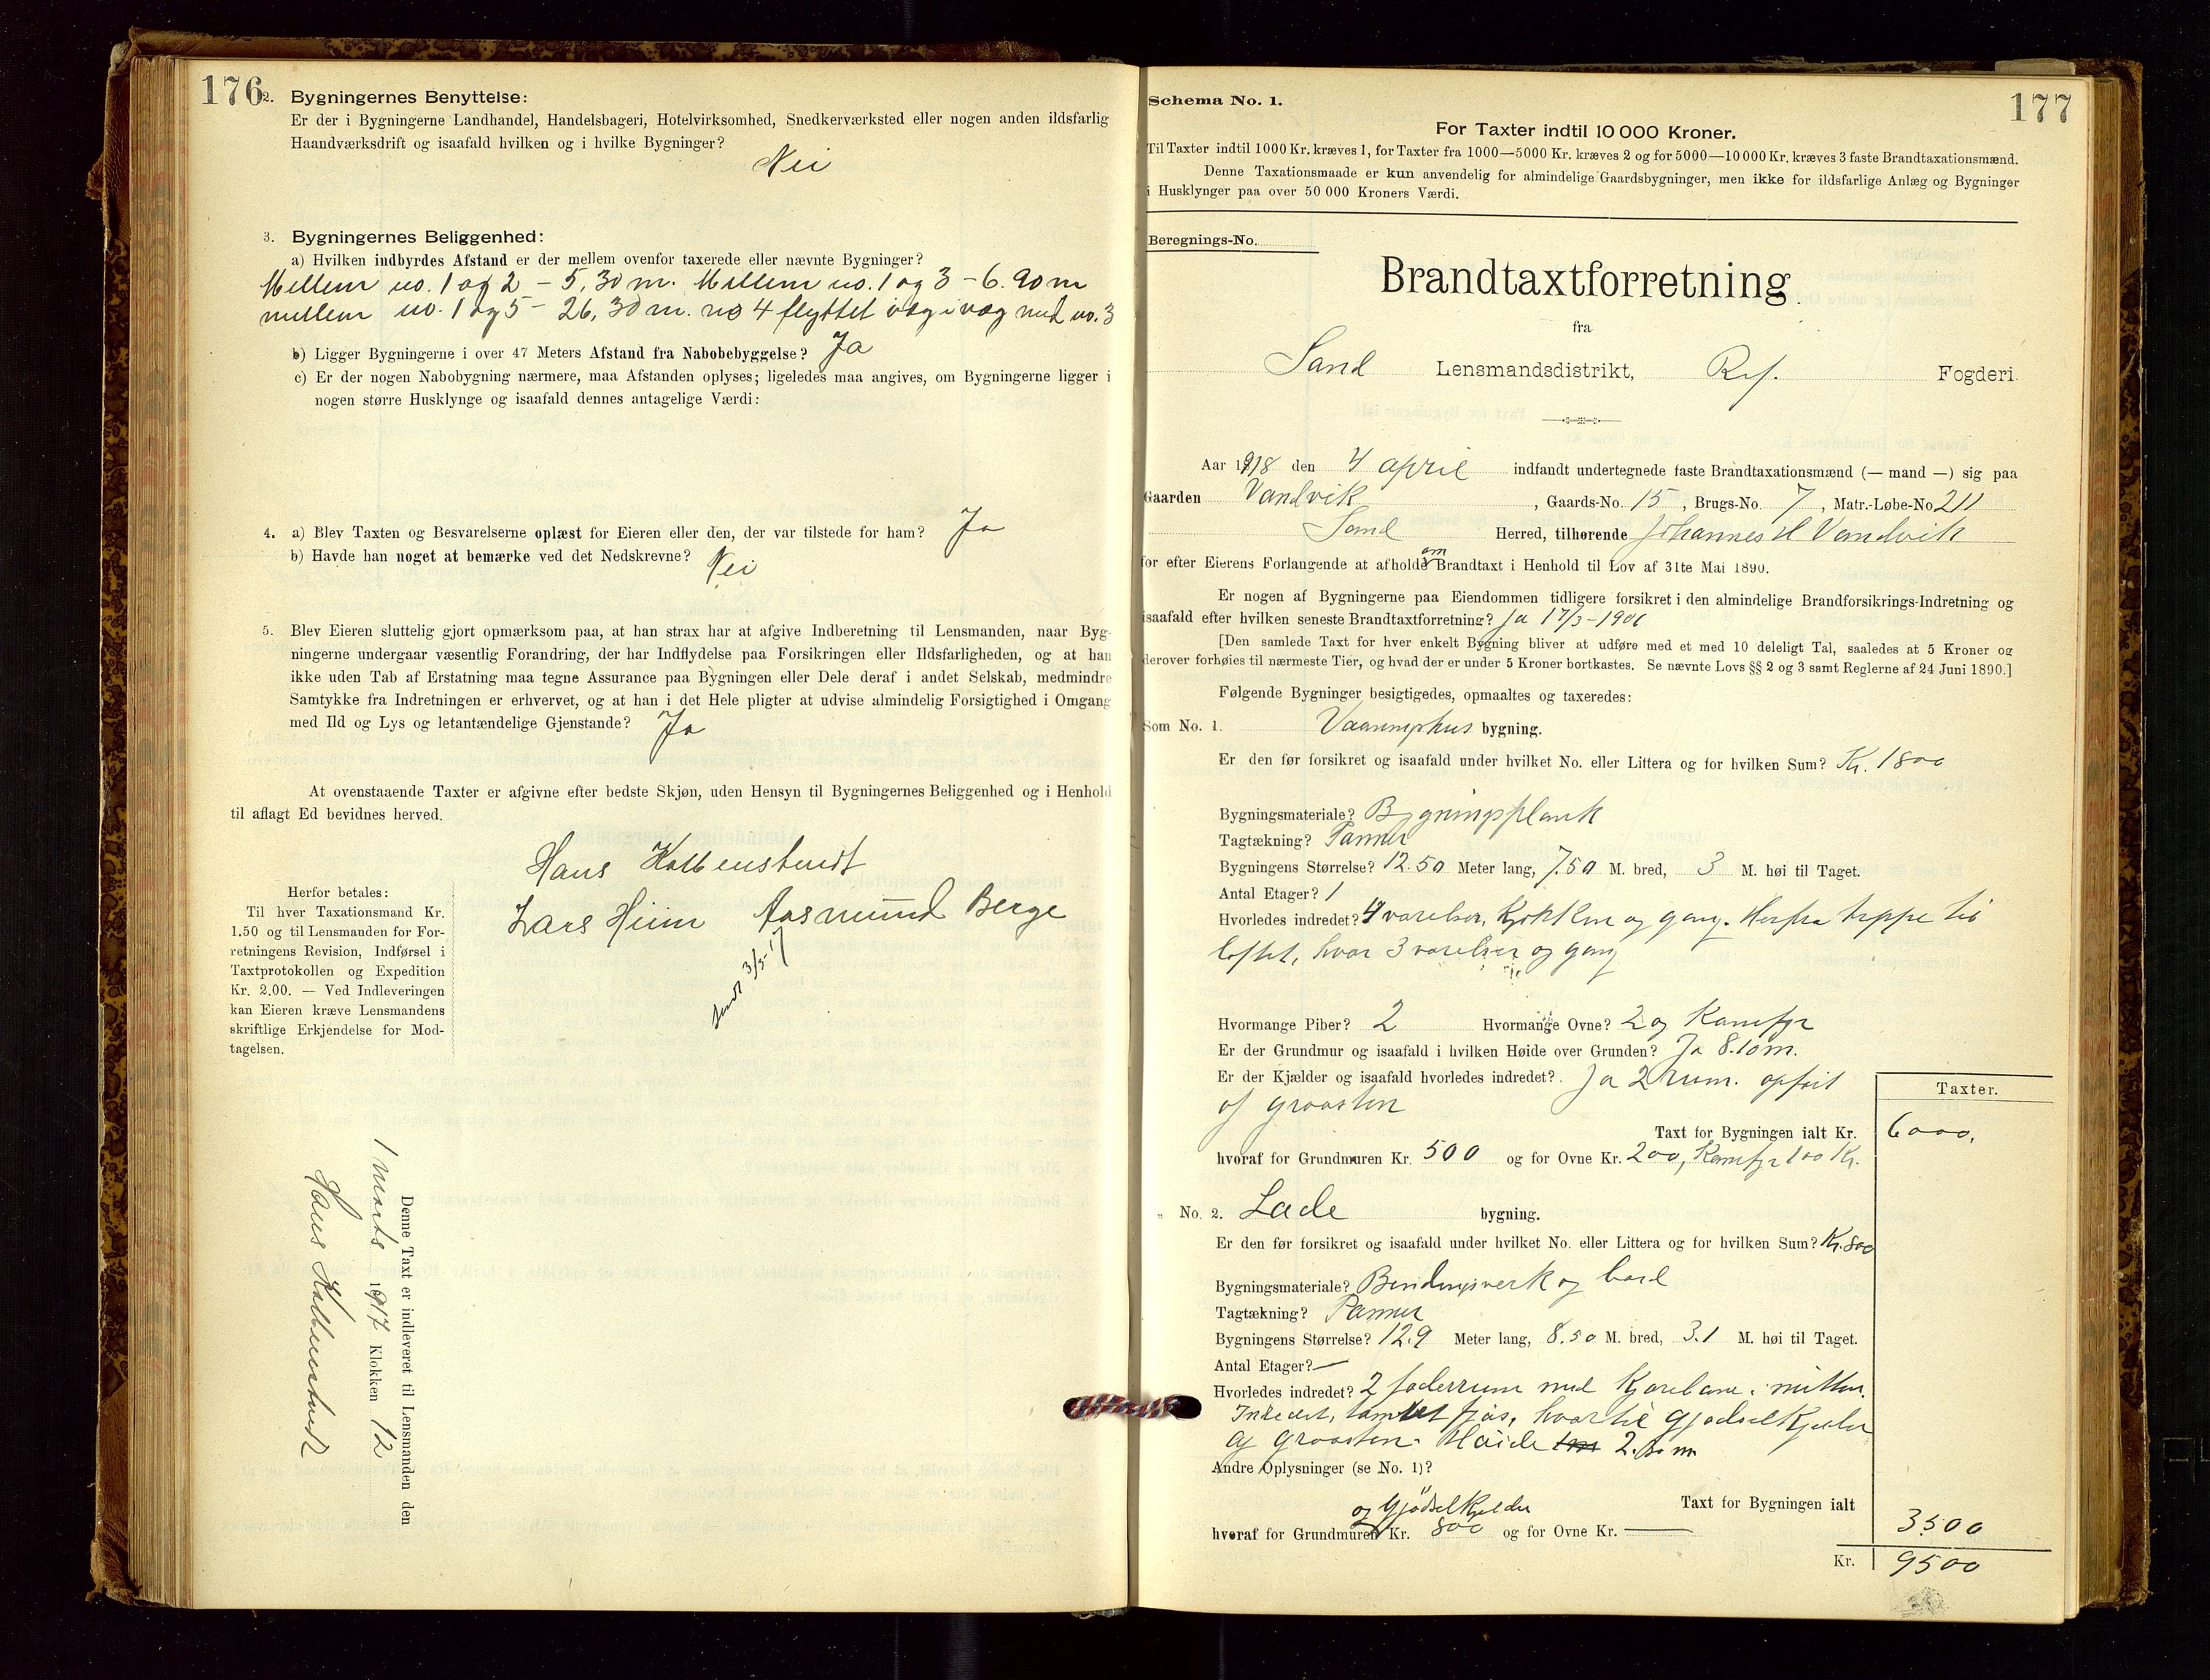 176
2. Bygningernes Benyttelse:
Er der i Bygningerne Landhandel, Handelsbageri, Hotelvirksomhed, Snedkerværksted eller nogen anden ildsfarlig
Haandværksdrift og isaafald hvilken og i hvilke Bygninger?
Nei
3. Bygningernes Beliggenhed:
a) Hvilken indbyrdes Afstand er der mellem ovenfor taxerede eller nævnte Bygninger?
Mellem no. 1 og 2 - 5,30 m. Mellem no. 1 og 3 - 6.90 m
mellem no. 1 og 5 - 26,30 m. no 4 flyttet væg i væg med no. 3
b) Ligger Bygningerne i over 47 Meters Afstand fra Nabobebyggelse? Ja
c) Er der nogen Nabobygning nærmere, maa Afstanden oplyses; ligeledes maa angives, om Bygningerne ligger i
nogen større Husklynge og isaafald dennes antagelige Værdi:
4. a) Blev Taxten og Besvarelserne oplæst for Eieren eller den, der var tilstede for ham? Ja
b) Havde han noget at bemærke ved det Nedskrevne? Nei
5. Blev Eieren sluttelig gjort opmærksom paa, at han strax har at afgive Indberetning til Lensmanden, naar Byg-
ningerne undergaar væsentlig Forandring, der har Indflydelse paa Forsikringen eller Ildsfarligheden, og at han
ikke uden Tab af Erstatning maa tegne Assurance paa Bygningen eller Dele deraf i andet Selskab, medmindre
Samtykke fra Indretningen er erhvervet, og at han i det Hele pligter at udvise almindelig Forsigtighed i Omgang
med Ild og Lys og letantændelige Gjenstande? Ja
At ovenstaaende Taxter er afgivne efter bedste Skjøn, uden Hensyn til Bygningernes Beliggenhed og i Henhold
til aflagt Ed bevidnes herved.
Hans Kolbenstvedt
Lars Hiim Aasmund Berge
3/5-17
Herfor betales:
Til hver Taxationsmand Kr.
1.50 og til Lensmanden for For-
retningens Revision, Indførsel i
Taxtprotokollen og Expedition
Kr. 2.00. — Ved Indleveringen
kan Eieren kræve Lensmandens
skriftlige Erkjendelse for Mod-
tagelsen.
Denne Taxt er indleveret til Lensmanden den
1 marts 1917 Klokken 12
Hans Kolbenstvedt
177
Schema No. 1.
For Taxter indtil 10 000 Kroner.
Til Taxter indtil 1000 Kr. kræves 1, for Taxter fra 1000—5000 Kr. kræves 2 og for 5000—10 000 Kr. kræves 3 faste Brandtaxationsmænd.
Denne Taxationsmaade er kun anvendelig for almindelige Gaardsbygninger, men ikke for ildsfarlige Anlæg og Bygninger
i Husklynger paa over 50 000 Kroners Værdi.
Beregnings-No.
Brandtaxtforretning
fra
Sand Lensmandsdistrikt, Ryf. Fogderi.
Aar 1918 den 4 april indfandt undertegnede faste Brandtaxationsmænd (— mand —) sig paa
Gaarden Vandvik, Gaards-No. 15, Brugs-No. 7, Matr.-Løbe-No 211
Sand Herred, tilhørende Johannes H Vandvik
for efter Eierens Forlangende at afholde om Brandtaxt i Henhold til Lov af 31te Mai 1890.
Er nogen af Bygningerne paa Eiendommen tidligere forsikret i den almindelige Brandforsikrings-Indretning og
isaafald efter hvilken seneste Brandtaxtforretning? Ja 17/3-1906
[Den samlede Taxt for hver enkelt Bygning bliver at udføre med et med 10 deleligt Tal, saaledes at 5 Kroner og
derover forhøies til nærmeste Tier, og hvad der er under 5 Kroner bortkastes. Se nævnte Lovs §§ 2 og 3 samt Reglerne af 24 Juni 1890.]
Følgende Bygninger besigtigedes, opmaaltes og taxeredes:
Som No. 1. Vaaningshus bygning.
Er den før forsikret og isaafald under hvilket No. eller Littera og for hvilken Sum? Kr. 1800
Bygningsmateriale? Bygningsplank
Tagtækning? Panner
Bygningens Størrelse? 12.50 Meter lang, 7.50 M. bred, 3 M. høi til Taget.
Antal Etager? 1
Hvorledes indredet? 4 værelser, Kjøkken og gang. Herfra trappe til
loftet, hvor 3 værelser og gang
Hvormange Piber? 2 Hvormange Ovne? 2 og Komfyr
Er der Grundmur og isaafald i hvilken Høide over Grunden? Ja 8.10 m.
Er der Kjælder og isaafald hvorledes indredet? Ja 2 rum. opført
af graasten
Taxter.
Taxt for Bygningen ialt Kr. 6000,
hvoraf for Grundmuren Kr. 500 og for Ovne Kr. 200, Komfyr 100 Kr.
" No. 2. Lade bygning.
Er den før forsikret og isaafald under hvilket No. eller Littera og for hvilken Sum? Kr. 800
Bygningsmateriale? Bindingsverk og bord
Tagtækning? Panner
Bygningens Størrelse? 12.9 Meter lang, 8.50 M. bred, 3.1 M. høi til Taget.
Antal Etager? —
Hvorledes indredet? 2 foderrum med Kjørebane i mitten.
Indredet, tømret fjøs, hvortil gjødselkjelder
af graasten. Høide 2.50 m
Andre Oplysninger (se No. 1)?
og gjødselkjelder Taxt for Bygningen ialt
hvoraf for Grundmuren Kr. 800 og for Ovne Kr. — 3500
Kr. 9500